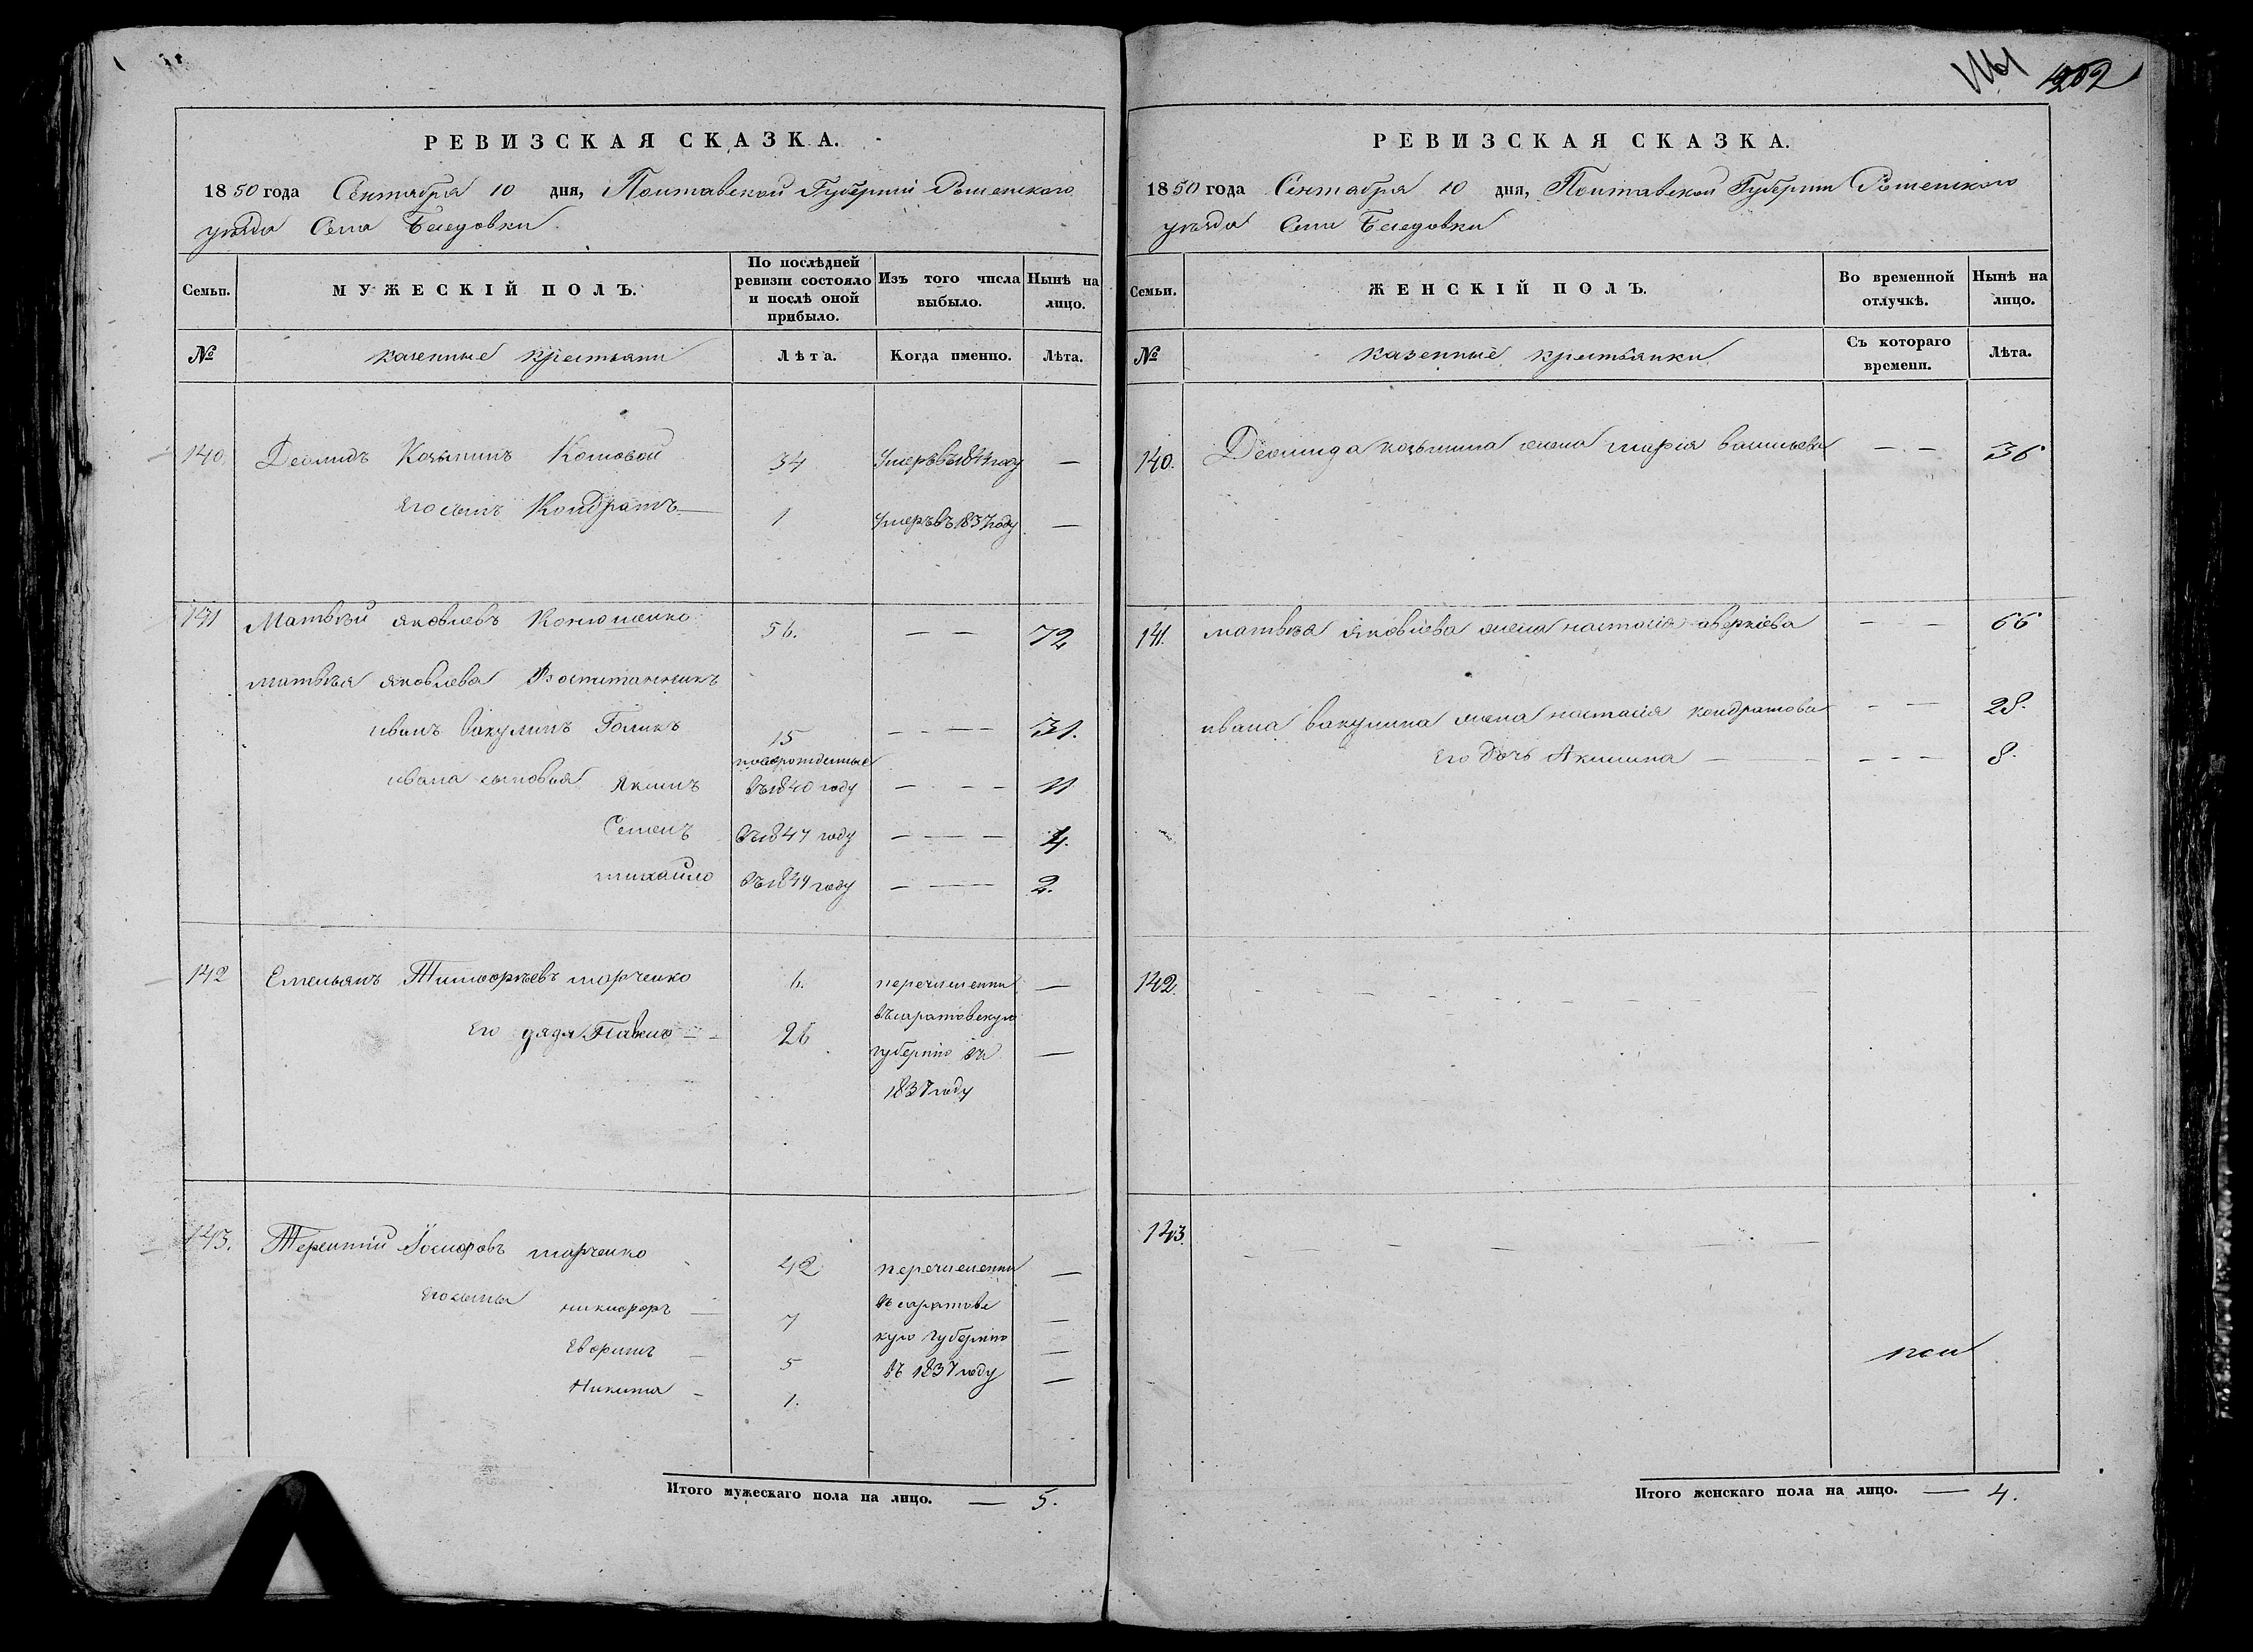 1202
РЕВИЗСКАЯ СКАЗКА.
1850 года Сентября 10 дня, Полтавской Губерніи Роменскаго
уѣзда Села Беседовки
Семьи.
МУЖЕСКІЙ ПОЛЪ.
По послѣдней ревизіи состояло и послѣ оной прибыло.
Изъ того числа выбыло.
Нынѣ на лицо.
№
казенные крестьяни
Лѣта.
Когда именно.
Лѣта.
140 Деомидъ Козьминъ Котовой 34 Умеръ въ 18 году —
его сынъ Кондратъ 1 Умеръ въ 1837 году —
141 Матвѣй яковлевъ Конюшенко 56. — — 72
матвѣя яковлева Воспитанникъ
иванъ Вакулинъ Голикъ 15 — — — 31.
новорожденные
ивана сыновья Якимъ въ 1840 году — — — 11
Семенъ въ 1847 году — — — 4.
михайло въ 1849 году — — 2.
142 Емельянъ Тимофѣевъ марченко 6. перечислены —
его дядя Павло 26 въ саратовскую
губернію въ —
1837 году
143. Терентій марченко 42 перечислены —
его сыны никифоръ — 7 въ саратовс —
кую губернію
Евфимъ — 5 въ 1837 году —
Никита — 1. —
Итого мужескаго пола на лицо. — 5.
РЕВИЗСКАЯ СКАЗКА.
1850 года Сентября 10 дня, Полтавской Губерніи Роменскаго
уѣзда Села Беседовки
Семьи.
ЖЕНСКІЙ ПОЛЪ.
Во временной отлучкѣ.
Нынѣ на лицо.
№
казенные крестьянки
Съ котораго времени.
Лѣта.
140. Деомида козьмина жена марія васильева — — 36
141. матвѣя яковлева жена настасія аверкіева — — 66
ивана вакулина жена настасія кондратова — — 28.
его дочь Акилина — — — — 8.
142.
143.
Итого женскаго пола на лицо. — 4.